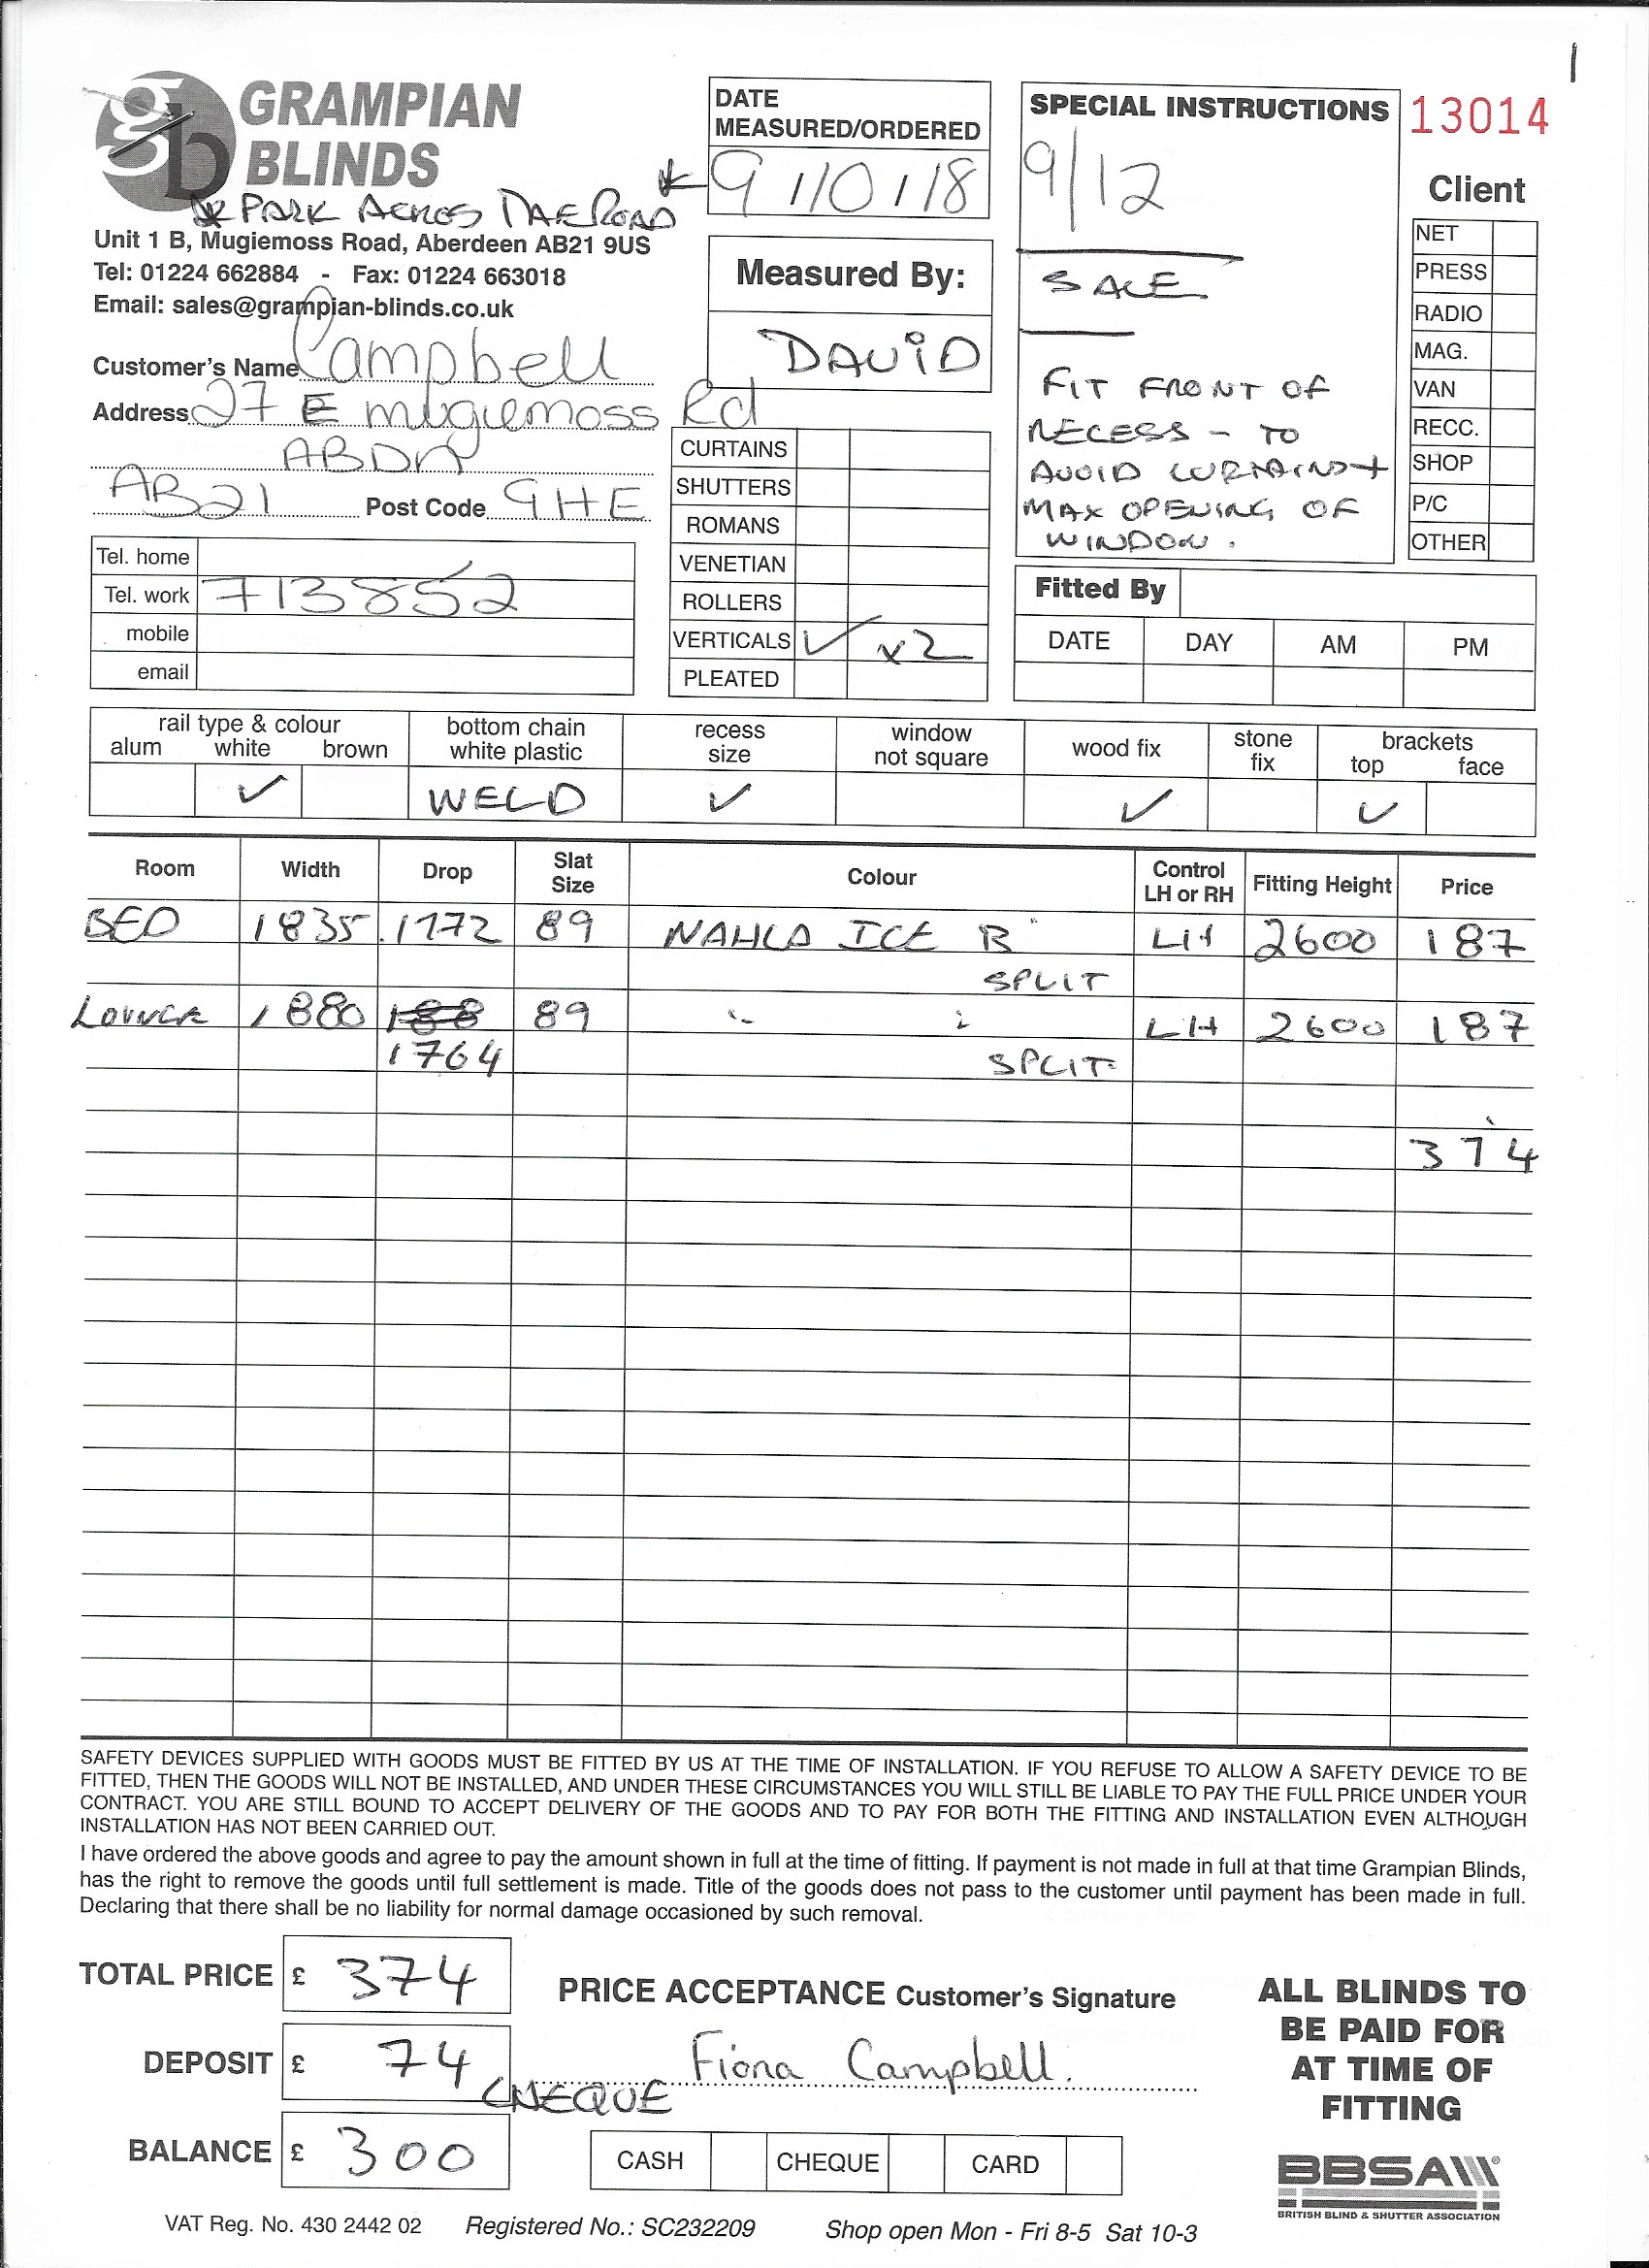 GRAMPIAN
BLINDS
gb
PARK ACROS THE ROAD
Unit 1 B, Mugiemoss Road, Aberdeen AB21 9US
Tel: 01224 662884 - Fax: 01224 663018
Email: sales@grampian-blinds.co.uk
Customer's Name Campbell
Address 27 E mugiemoss Rd
ABDN
AB21 Post Code 9HE
Tel. home
Tel. work 713852
mobile
email
DATE
MEASURED/ORDERED
9/10/18
Measured By:
DAVID
CURTAINS
SHUTTERS
ROMANS
VENETIAN
ROLLERS
VERTICALS ✓ x2
PLEATED
SPECIAL INSTRUCTIONS
9/12
SALE
FIT FRONT OF
RECESS - TO
AVOID CURTAINS +
MAX OPENING OF
WINDOW.
13014
1
Client
NET
PRESS
RADIO
MAG.
VAN
RECC.
SHOP
P/C
OTHER
Fitted By
DATE DAY AM PM
rail type & colour
alum white brown
✓
bottom chain
white plastic
WELD
recess
size
✓
window
not square
wood fix
✓
stone
fix
brackets
top face
✓
Room Width Drop Slat Size Colour Control LH or RH Fitting Height Price
BED 1835 1772 89 NAHLA ICE B LH 2600 187
SPLIT
LOUNGE 1880 188 89 " " LH 2600 187
1764 SPLIT
374
SAFETY DEVICES SUPPLIED WITH GOODS MUST BE FITTED BY US AT THE TIME OF INSTALLATION. IF YOU REFUSE TO ALLOW A SAFETY DEVICE TO BE
FITTED, THEN THE GOODS WILL NOT BE INSTALLED, AND UNDER THESE CIRCUMSTANCES YOU WILL STILL BE LIABLE TO PAY THE FULL PRICE UNDER YOUR
CONTRACT. YOU ARE STILL BOUND TO ACCEPT DELIVERY OF THE GOODS AND TO PAY FOR BOTH THE FITTING AND INSTALLATION EVEN ALTHOUGH
INSTALLATION HAS NOT BEEN CARRIED OUT.
I have ordered the above goods and agree to pay the amount shown in full at the time of fitting. If payment is not made in full at that time Grampian Blinds,
has the right to remove the goods until full settlement is made. Title of the goods does not pass to the customer until payment has been made in full.
Declaring that there shall be no liability for normal damage occasioned by such removal.
TOTAL PRICE £ 374
DEPOSIT £ 74
CHEQUE
BALANCE £ 300
PRICE ACCEPTANCE Customer's Signature
Fiona Campbell.
CASH CHEQUE CARD
ALL BLINDS TO
BE PAID FOR
AT TIME OF
FITTING
BBSA
BRITISH BLIND & SHUTTER ASSOCIATION
VAT Reg. No. 430 2442 02 Registered No.: SC232209 Shop open Mon - Fri 8-5 Sat 10-3